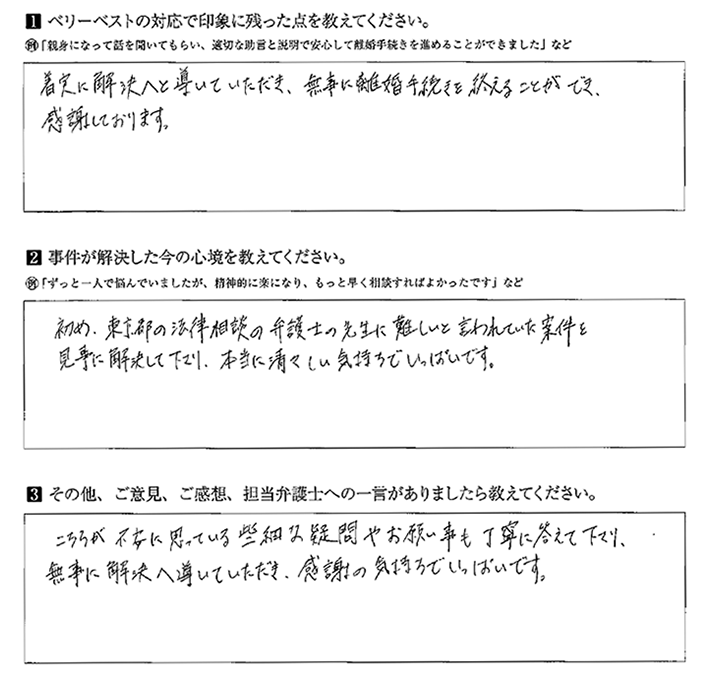 1 ベリーベストの対応で印象に残った点を教えてください。
例「親身になって話を聞いてもらい、適切な助言と説明で安心して離婚手続きを進めることができました」など
着実に解決へと導いていただき、無事に離婚手続きを終えることができ、
感謝しております。
2 事件が解決した今の心境を教えてください。
例「ずっと一人で悩んでいましたが、精神的に楽になり、もっと早く相談すればよかったです」など
初め、東京都の法律相談の弁護士の先生に難しいと言われていた案件を
見事に解決して下さり、本当に清々しい気持ちでいっぱいです。
3 その他、ご意見、ご感想、担当弁護士への一言がありましたら教えてください。
こちらが不安に思っている些細な疑問やお願い事も丁寧に答えて下さり、
無事に解決へ導いていただき、感謝の気持ちでいっぱいです。